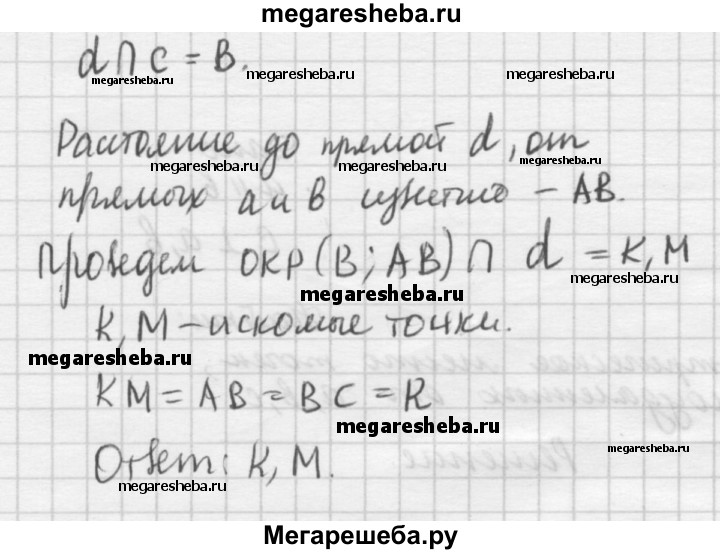 megaresheba.ru
d ∩ c = B.
megaresheba.ru megaresheba.ru megaresheba.ru
Расстояние до прямой d, от
megaresheba.ru megaresheba.ru
прямых a и b
megaresheba.ru megaresheba.ru
– AB.
Проведем окр(B; AB) ∩ d = K, M
megaresheba.ru
megaresheba.ru
K, M – искомые точки.
megaresheba.ru megaresheba.ru
KM = AB = BC = R
megaresheba.ru
Ответ: K, M.
megaresheba.ru megaresheba.ru
Мегарешеба.ру